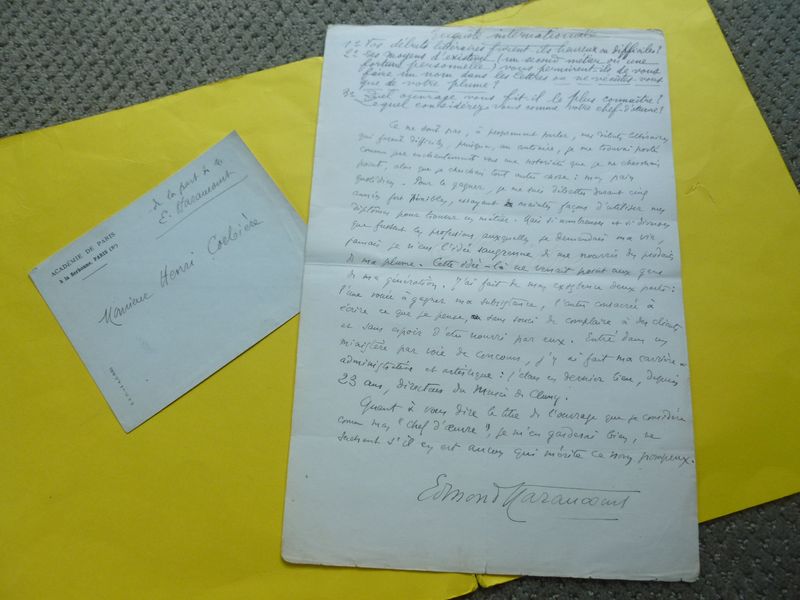 Enquête internationale
1º Vos débuts littéraires furent-ils heureux ou difficiles?
2º Les moyens d'existence (un second métier ou une
fortune personnelle) vous permirent-ils de vous
faire un nom dans les lettres ou ne vécûtes-vous
que de votre plume?
3º Quel ouvrage vous fit-il le plus connaître?
Lequel considérez-vous comme votre chef d'œuvre?
Ce ne sont pas, à proprement parler, mes débuts littéraires
qui furent difficiles, puisque, au contraire, je me trouvai porté
comme par enchantement vers une notoriété que je ne cherchais
point, alors que je cherchais tout autre chose: mon pain
quotidien. Pour le gagner, je me suis débattu durant cinq
années fort pénibles, essayant maintes façons d'utiliser mes
diplômes pour trouver un métier. Mais si nombreuses et si diverses
que fussent les professions auxquelles je demandais ma vie,
jamais je n'eus l'idée saugrenue de me nourrir des produits
de ma plume. Cette idée-là ne venait point aux gens
de ma génération. J'ai fait de mon existence deux parts:
l'une vouée à gagner ma subsistance, l'autre consacrée à
écrire ce que je pense, sans souci de complaire à des clients
et sans espoir d'être nourri par eux. Entré dans un
ministère par voie de concours, j'y ai fait ma carrière
administrative et artistique: j'étais en dernier lieu, depuis
23 ans, directeur du Musée de Cluny.
Quant à vous dire le titre de l'ouvrage que je considère
comme mon "chef d'œuvre", je m'en garderai bien, ne
sachant s'il en est aucun qui mérite ce nom pompeux.
Edmond Haraucourt
de la part de
E. Haraucourt
ACADÉMIE DE PARIS
à la Sorbonne, PARIS (Vº)
Monsieur Henri Corbière